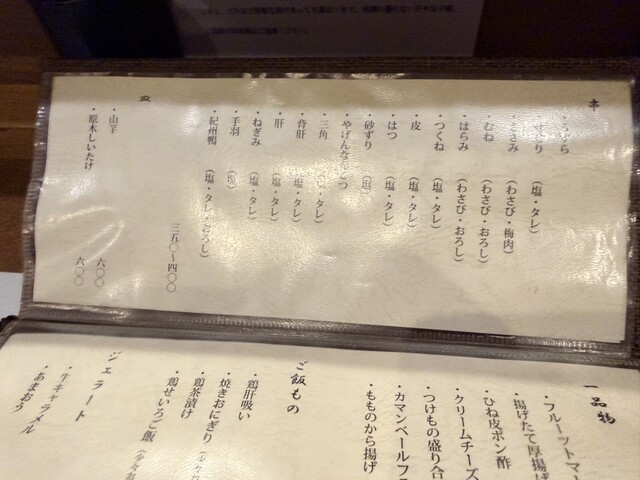 串
(塩・タレ)
・ささみ (わさび・梅肉)
・むね (わさび・おろし)
・はらみ (わさび・おろし)
・つくね (塩・タレ)
・皮 (塩・タレ)
・はつ (塩・タレ)
・砂ずり (塩)
・やげんなんこつ
・三角 (塩・タレ)
・背肝 (塩・タレ)
・肝 (塩・タレ)
・ねぎみ (塩・タレ)
・手羽 (塩)
・紀州鴨 (塩・タレ・おろし)
三五〇~四〇〇
・山芋 六〇〇
・原木しいたけ 六〇〇
一品物
・フルーツトマ
・揚げたて厚揚げ
・ひね皮ポン酢
・クリームチーズ
・つけもの盛り合
・カマンベールフ
・もものから揚げ
ご飯もの
・鶏肝吸い
・焼きおにぎり
・鶏茶漬け
・鶏せいろご飯
ジェラート
・生キャラメル
・あまおう